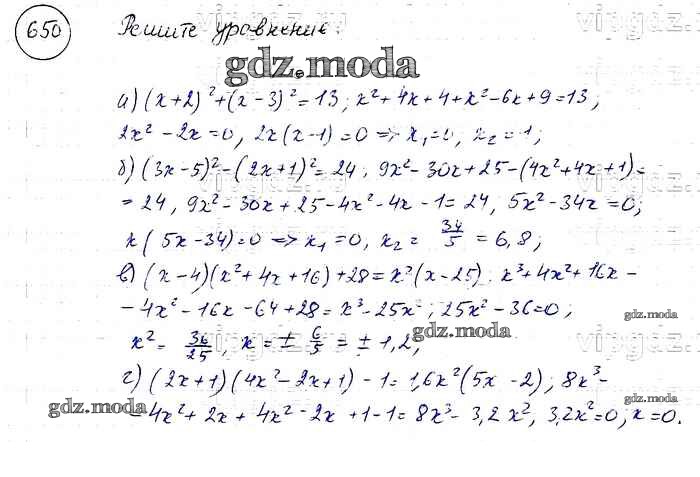 650 Решите уравнение:
gdz.moda
а) (x+2)²+(x-3)²=13; x²+4x+4+x²-6x+9=13;
2x²-2x=0, 2x(x-1)=0 => x₁=0, x₂=1;
б) (3x-5)²-(2x+1)²=24, 9x²-30x+25-(4x²+4x+1)=
=24, 9x²-30x+25-4x²-4x-1=24, 5x²-34x=0;
x(5x-34)=0 => x₁=0, x₂=34/5=6,8;
в) (x-4)(x²+4x+16)+28=x²(x-25); x³+4x²+16x-
-4x²-16x-64+28=x³-25x²; 25x²-36=0;
gdz.moda
x²=36/25, x=±6/5=±1,2;
gdz.moda
г) (2x+1)(4x²-2x+1)-1=1,6x²(5x-2); 8x³-
gdz.moda
-4x²+2x+4x²-2x+1-1=8x³-3,2x², 3,2x²=0; x=0.
gdz.moda